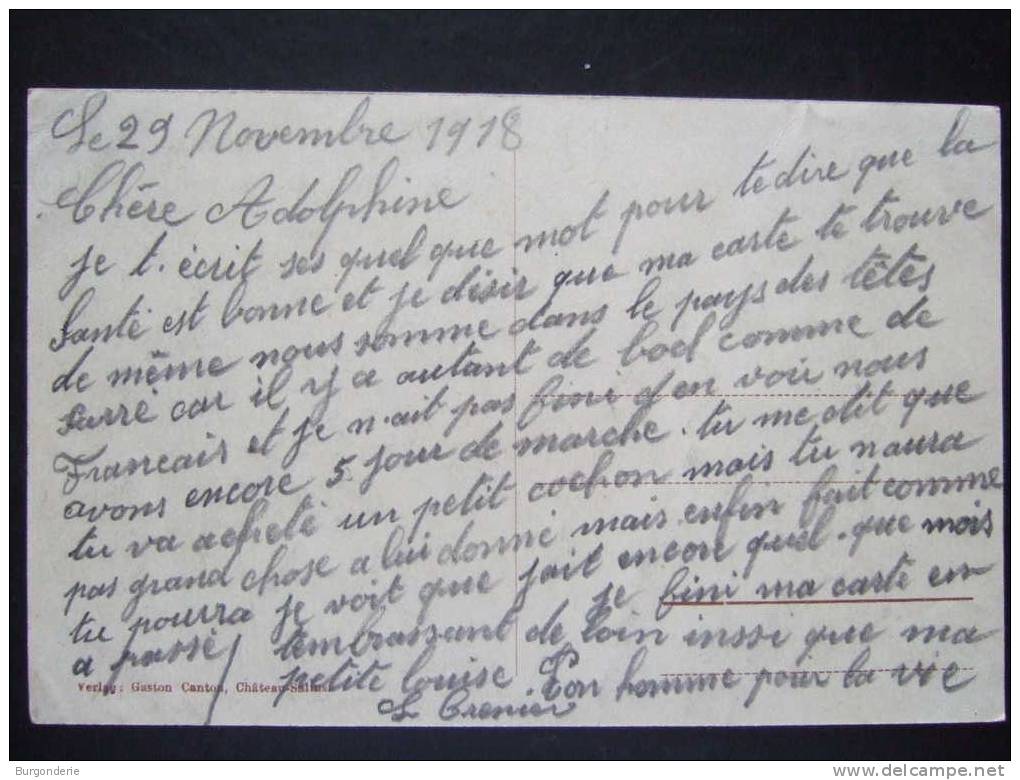 Le 29 Novembre 1918
Chère Adolphine
je t. écrit ses quel que mot pour te dire que la
santé est bonne et je désir que ma carte te trouve
de même nous somme dans le pays des têtes
carré car il y a autant de boel comme de
Francais et je n.ait pas fini d'en voir nous
avons encore 5 jour de marche. tu me dit que
tu va acheté un petit cochon mais tu naura
pas grand chose a lui donné mais enfin fait comme
tu pourra je voit que jait encore quel.que mois
a passé / je fini ma carte en
tembrassant de loin inssi que ma
petite louise. Ton homme pour la vie
L Grenier
Verlag: Gaston Canton, Château-Salins
Burgonderie
delcampe.net